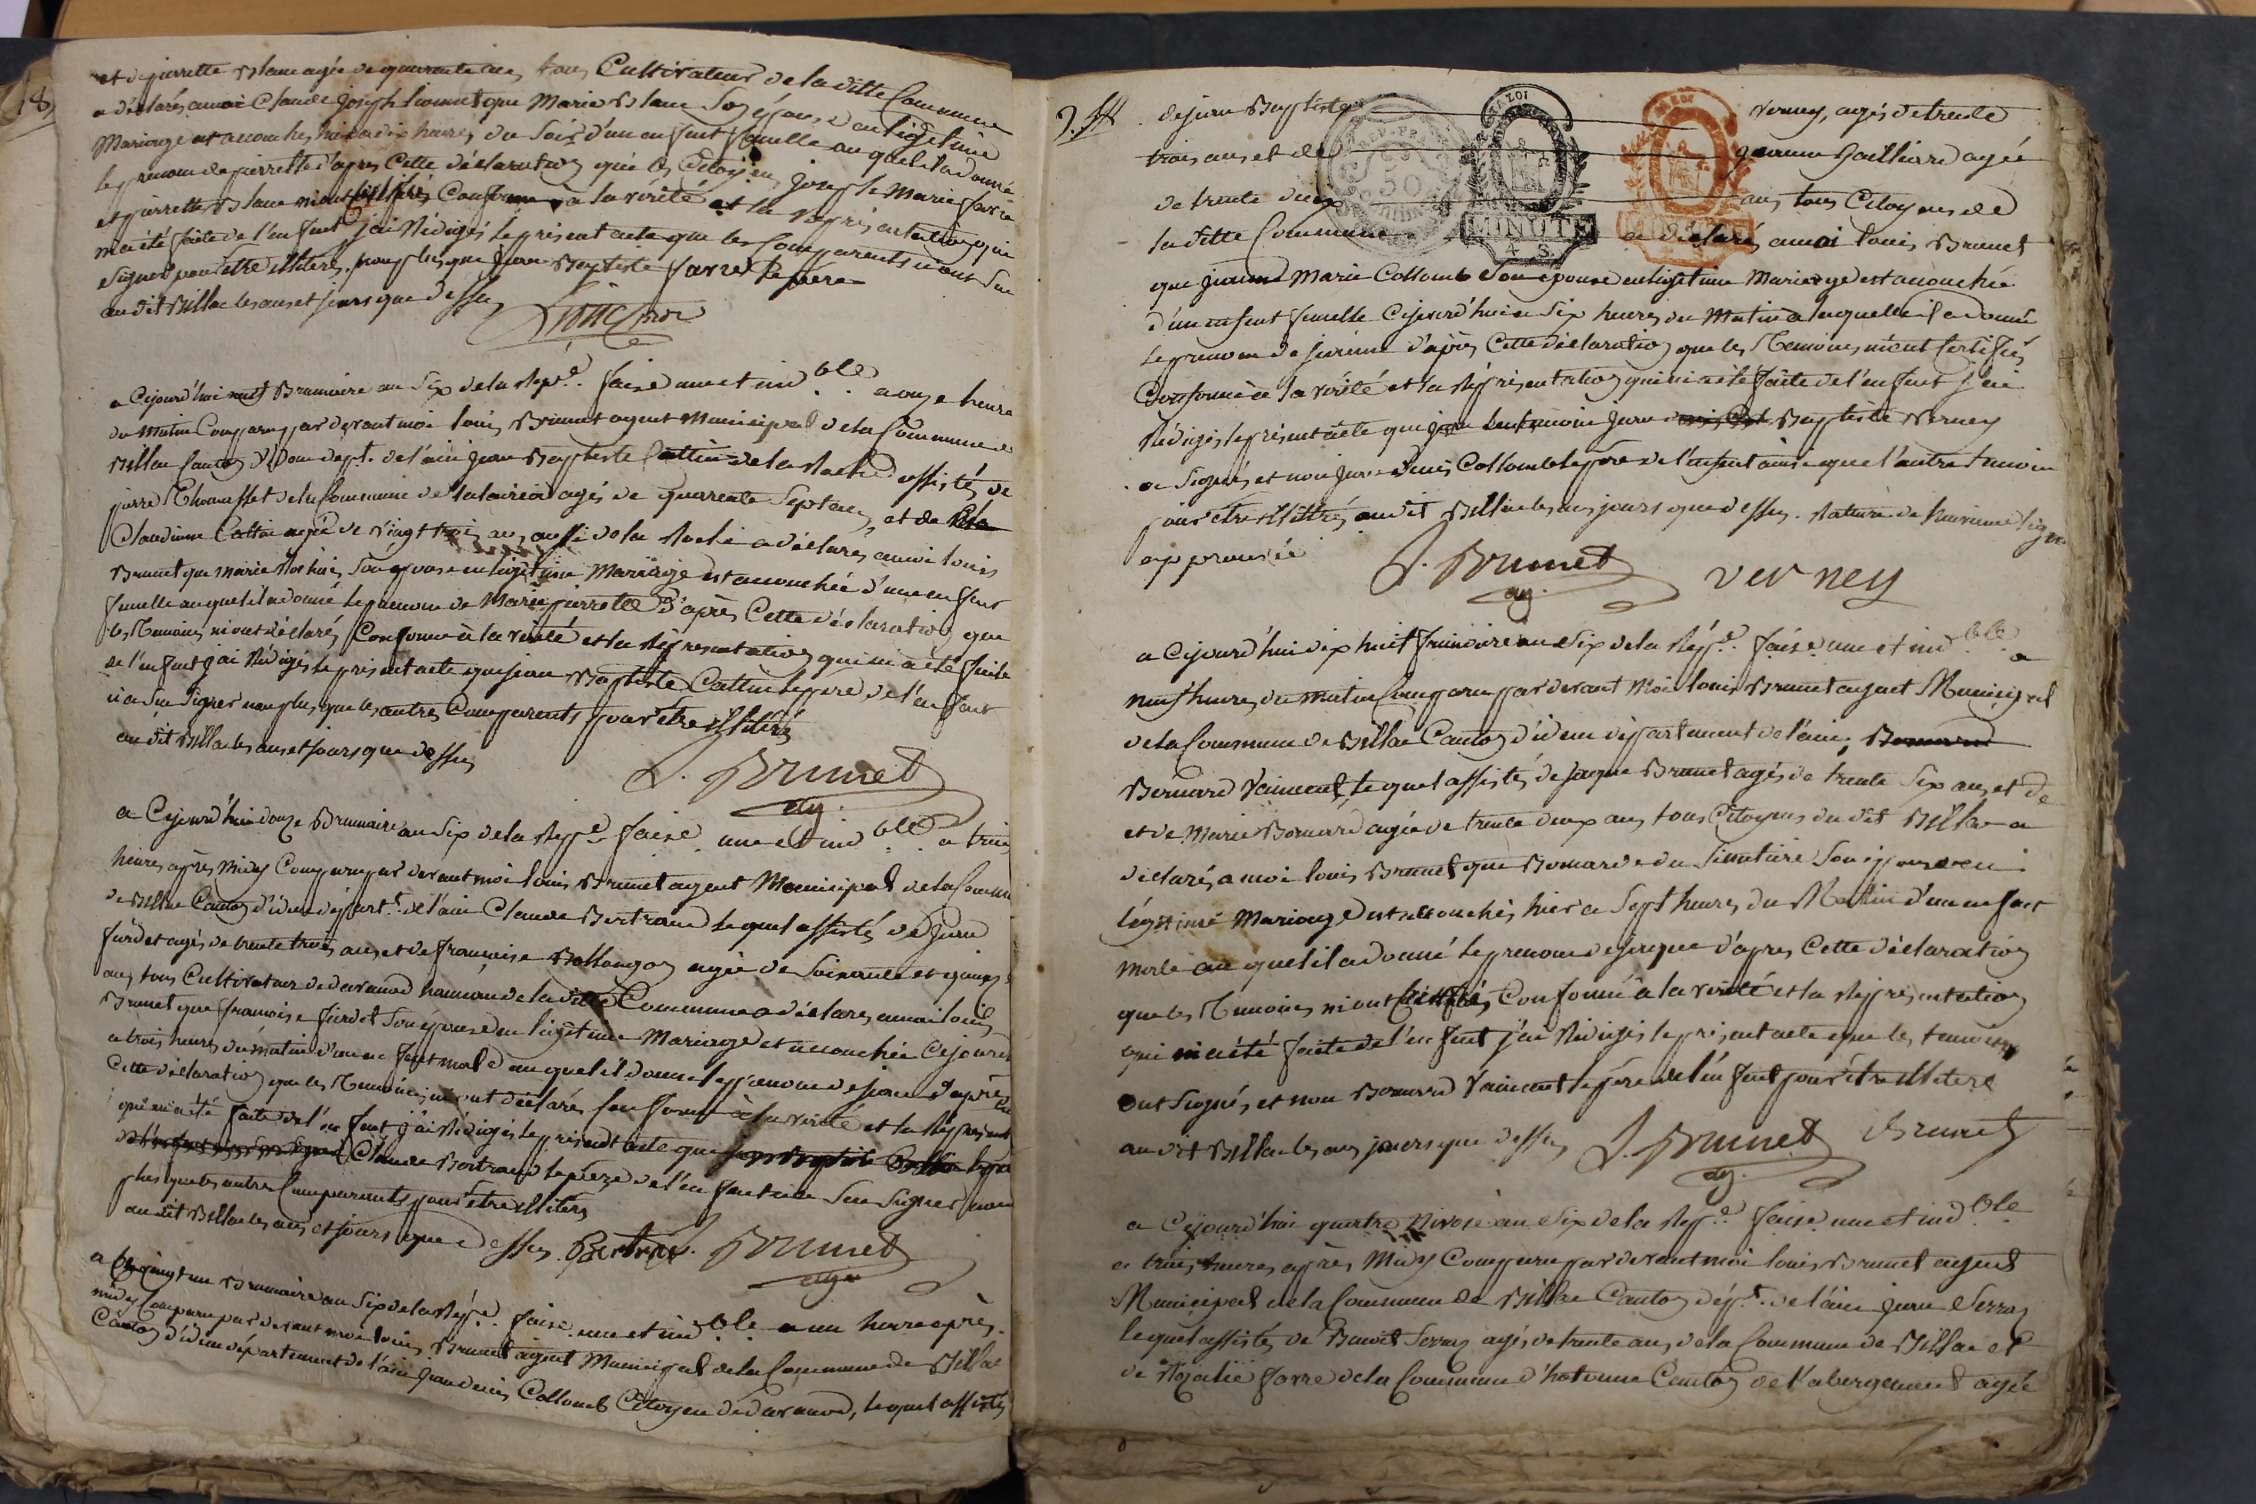 18
et de pierrette Blanc agée de quarente ans tous Cultivateur de la ditte Commune
a déclarés a moi Claude Joseph que Marie Blanc Son épouse en légitime
Mariage est accouchés hier a dix heures du Soir d'un enfant femelle au quel il a donné
le prenom de pierrette d'apres Cette déclaration que les Citoyens Joseph Marie favre
et pierrette Blanc m'ont Certifiés Conforme a la vérité et la représentation qui
m'a été faite de l'enfant j'ai Rédigés le présent acte que les Comparents n'ont Su
Signer pour être illitéres non plus que Jean Baptiste favre le père
au dit Billia les ans et jours que dessus
a Cejourd'hui neuf Brumaire an Six de la Repe. faise une et ind ble a onze heures
du Matin Comparu par devant moi louis Brunet agent Municipal de la Commune de
Billia Canton d'idem dept. de l'ain Jean Baptiste Cattin de la Roche assistés de
pierre de la Commune de agés de quarente Sept ans, et de
Claudine Cattin agée de vingt trois ans aussi de la Roche a déclarés a moi louis
Brunet que marie Son épouse en légitime Mariage est accouchée d'un enfant
femelle au quel il a donné le prenom de Marie pierrette D'après Cette déclaration que
les Temoins m'ont déclarés Conforme à la vérité et la Représentation qui m'a été faite
de l'enfant j'ai Rédigés le présent acte que jean Baptiste Cattin le père de l'enfant
n'a Su Signer non plus que les autres Comparents pour être illitéré
au dit Billia les ans et jours que dessus
L. Brunet
ag.
a Cejourd'hui douze Brumaire an Six de la Repe faise une et ind ble a trois
heures après Midy Comparu par devant moi louis Brunet agent Municipal de la Commune
de Billia Canton d'idem départ. de l'ain Claude Bertrand le quel assistés de Jean
furdet agés de trente trois ans et de françoise Ballongos agée de Soixante et quinze
ans tous Cultivateur de davanod hameau de la ditte Commune a déclarés a moi louis
Brunet que françoise furdet Son épouse en légitime Mariage est accouchée Cejourd'hui
a trois heures du matin d'un enfant mal auquel il donne le prenom de jean d'après
Cette déclaration que les Temoins m'ont déclarés Conforme à la vérité et la Représent
qui m'a été faite de l'enfant j'ai Rédigés le présent acte que
Claude Bertrand le père de l'enfant n'a Su Signer non
plus que les autres Comparents pour être illitéres
au dit Billia les ans et jours que dessus Bertrand. L. Brunet
agen
a vingt un Brumaire an Six de la Repe. faise une et ind ble a un heure après
midy Comparu par devant moi louis Brunet agent Municipal de la Commune de Billia
Canton d'idem département de l'ain Jean denis Collomb Citoyen de davanod, le quel assistés
de jean Baptiste Verney, agés de trente
REP. FRA
50
MINUTE
4 S
trois ans et de Jeanne Gailliard agée
de trente deux ans tous Citoyens de
la ditte Commune a déclarés a moi louis Brunet
que jeanne Marie Collomb Son épouse en légitime Mariage est accouchée
d'un enfant femelle Cejourd'hui a Six heures du Matin a laquelle il a donné
le prenom de jeanne d'après Cette déclaration que les Temoins m'ont Certifiés
Conforme à la vérité et la Représentation qui m'a été faite de l'enfant j'ai
Rédigés le présent acte que jean Baptiste Verney
a Signés et non Jean Denis Collomb le père de l'enfant ainsi que l'autre temoin
pour être illittrés au dit Billia les ans jours que dessus. Rature de
approuvée
L. Brunet
ag.
Verney
a Cejourd'hui dix huit frimaire an Six de la Repe. faise une et ind ble a
neuf heures du matin Comparu par devant Moi louis Brunet agent Municipal
de la Commune de Billia Canton d'idem département de l'ain,
Bernard Vaiment, le quel assistés de Jaque Brunet agés de trente Six ans et de
et de Marie Bornard agée de trente deux ans tous Citoyens du dit Billia a
déclarés a moi louis Brunet que Bornarde du Simetiere Son épouse en
légitime Mariage est accouchés hier a Sept heures du Matin d'un enfant
male au quel il a donné le prenom de jaque d'apres Cette déclaration
que les Temoins m'ont Certifiés Conforme à la vérité et la Représentation
qui m'a été faite de l'enfant j'ai Rédigés le présent acte que les temoins
ont Signés et non Bornard Vaiment le père de l'enfant pour être illitere
au dit Billia les ans jours que dessus L. Brunet Brunet
ag.
a Cejourd'hui quatre Nivose an Six de la Repe. faise une et ind ble
a trois heures après Midy Comparu par devant moi louis Brunet agent
Municipal de la Commune de Billia Canton dept. de l'ain Jean Serraz
le quel assistés de Benoit Serraz agés de trente ans, de la Commune de Billia et
de Rosalie favre de la Commune d'hotonne Canton de l'abergement agée